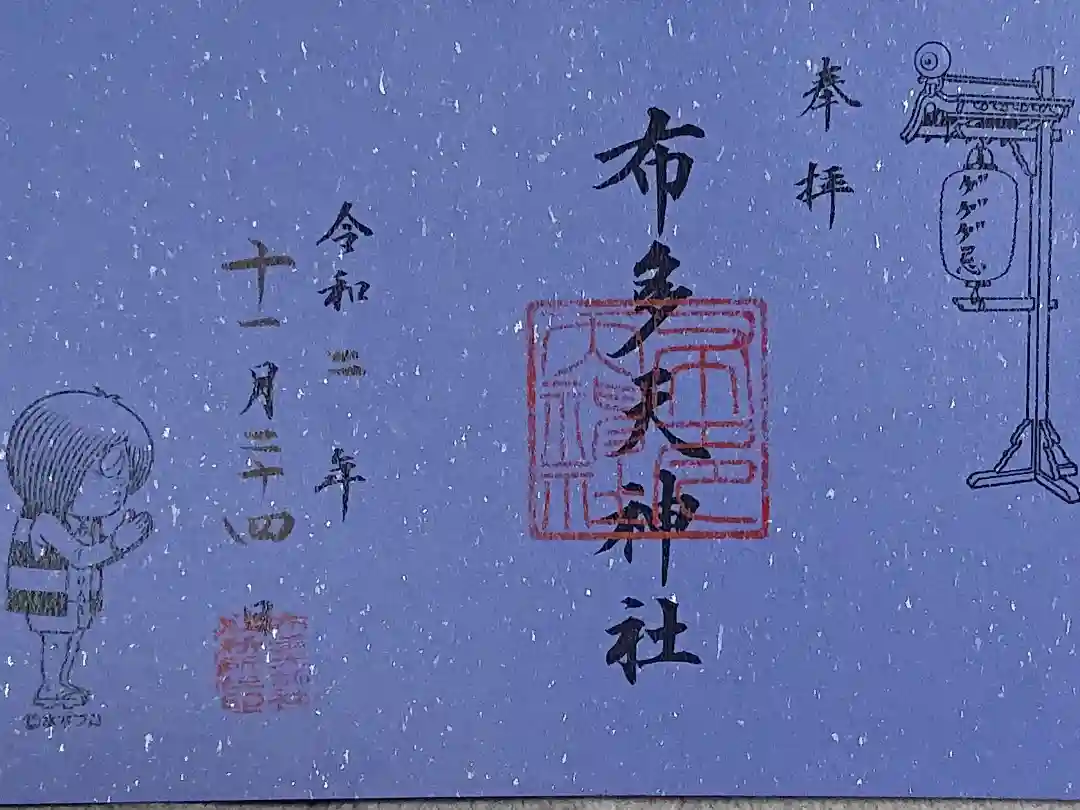 ゲゲゲ忌
奉拝
布多天神社
令和三年
十一月二十四日
©水木プロ